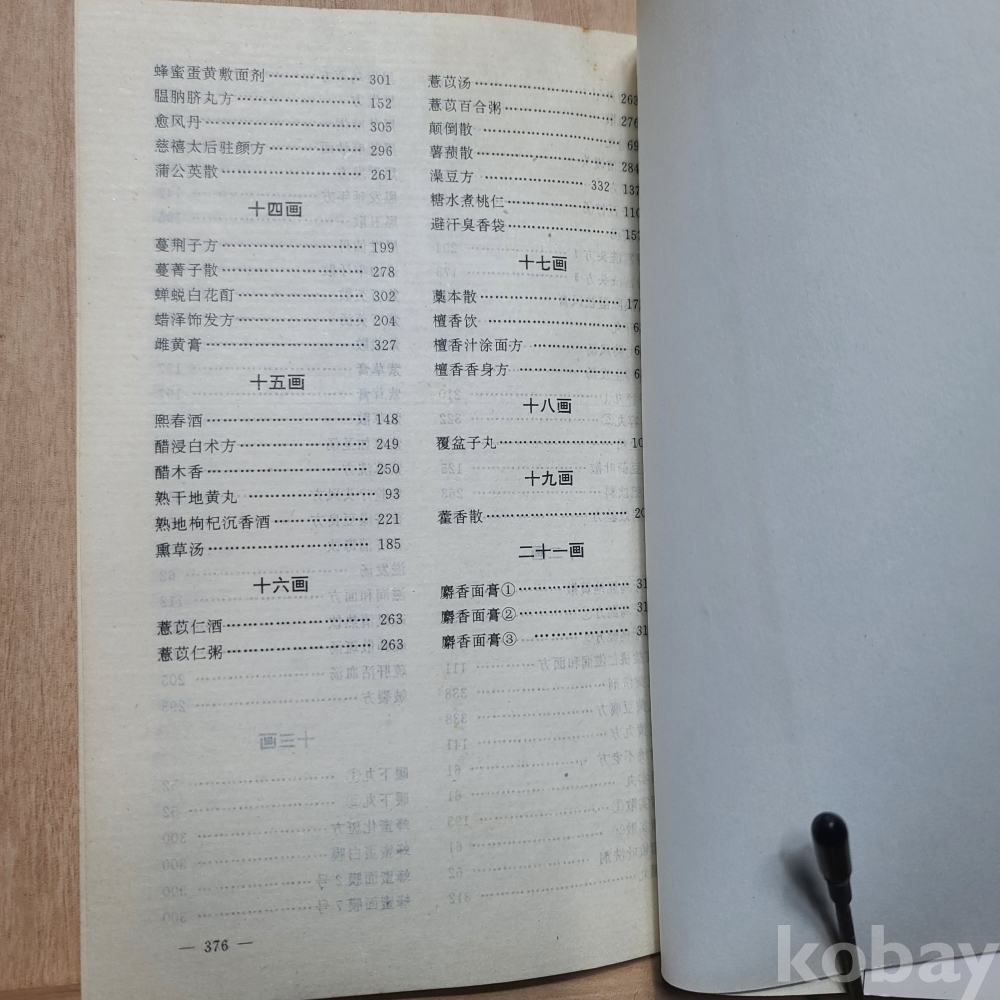 蜂蜜蛋黄敷面剂……………… 301
腽肭脐丸方…………………… 152
愈风丹………………………… 305
慈禧太后驻颜方……………… 296
蒲公英散……………………… 261
十四画
蔓荆子方……………………… 199
蔓菁子散……………………… 278
蝉蜕白花酊…………………… 302
蜡泽饰发方…………………… 204
雌黄膏………………………… 327
十五画
熙春酒………………………… 148
醋浸白术方…………………… 249
醋木香………………………… 250
熟干地黄丸…………………… 93
熟地枸杞沉香酒……………… 221
熏草汤………………………… 185
十六画
薏苡仁酒……………………… 263
薏苡仁粥……………………… 263
薏苡汤………………………… 263
薏苡百合粥…………………… 276
颠倒散………………………… 69
薯蓣散………………………… 284
澡豆方……………… 332 137
糖水煮桃仁…………………… 110
避汗臭香袋…………………… 15
十七画
藁本散………………………… 17
檀香饮………………………… 6
檀香汁涂面方………………… 6
檀香香身方…………………… 6
十八画
覆盆子丸……………………… 10
十九画
藿香散………………………… 20
二十一画
麝香面膏①…………………… 31
麝香面膏②…………………… 31
麝香面膏③…………………… 31
— 376 —
kobay